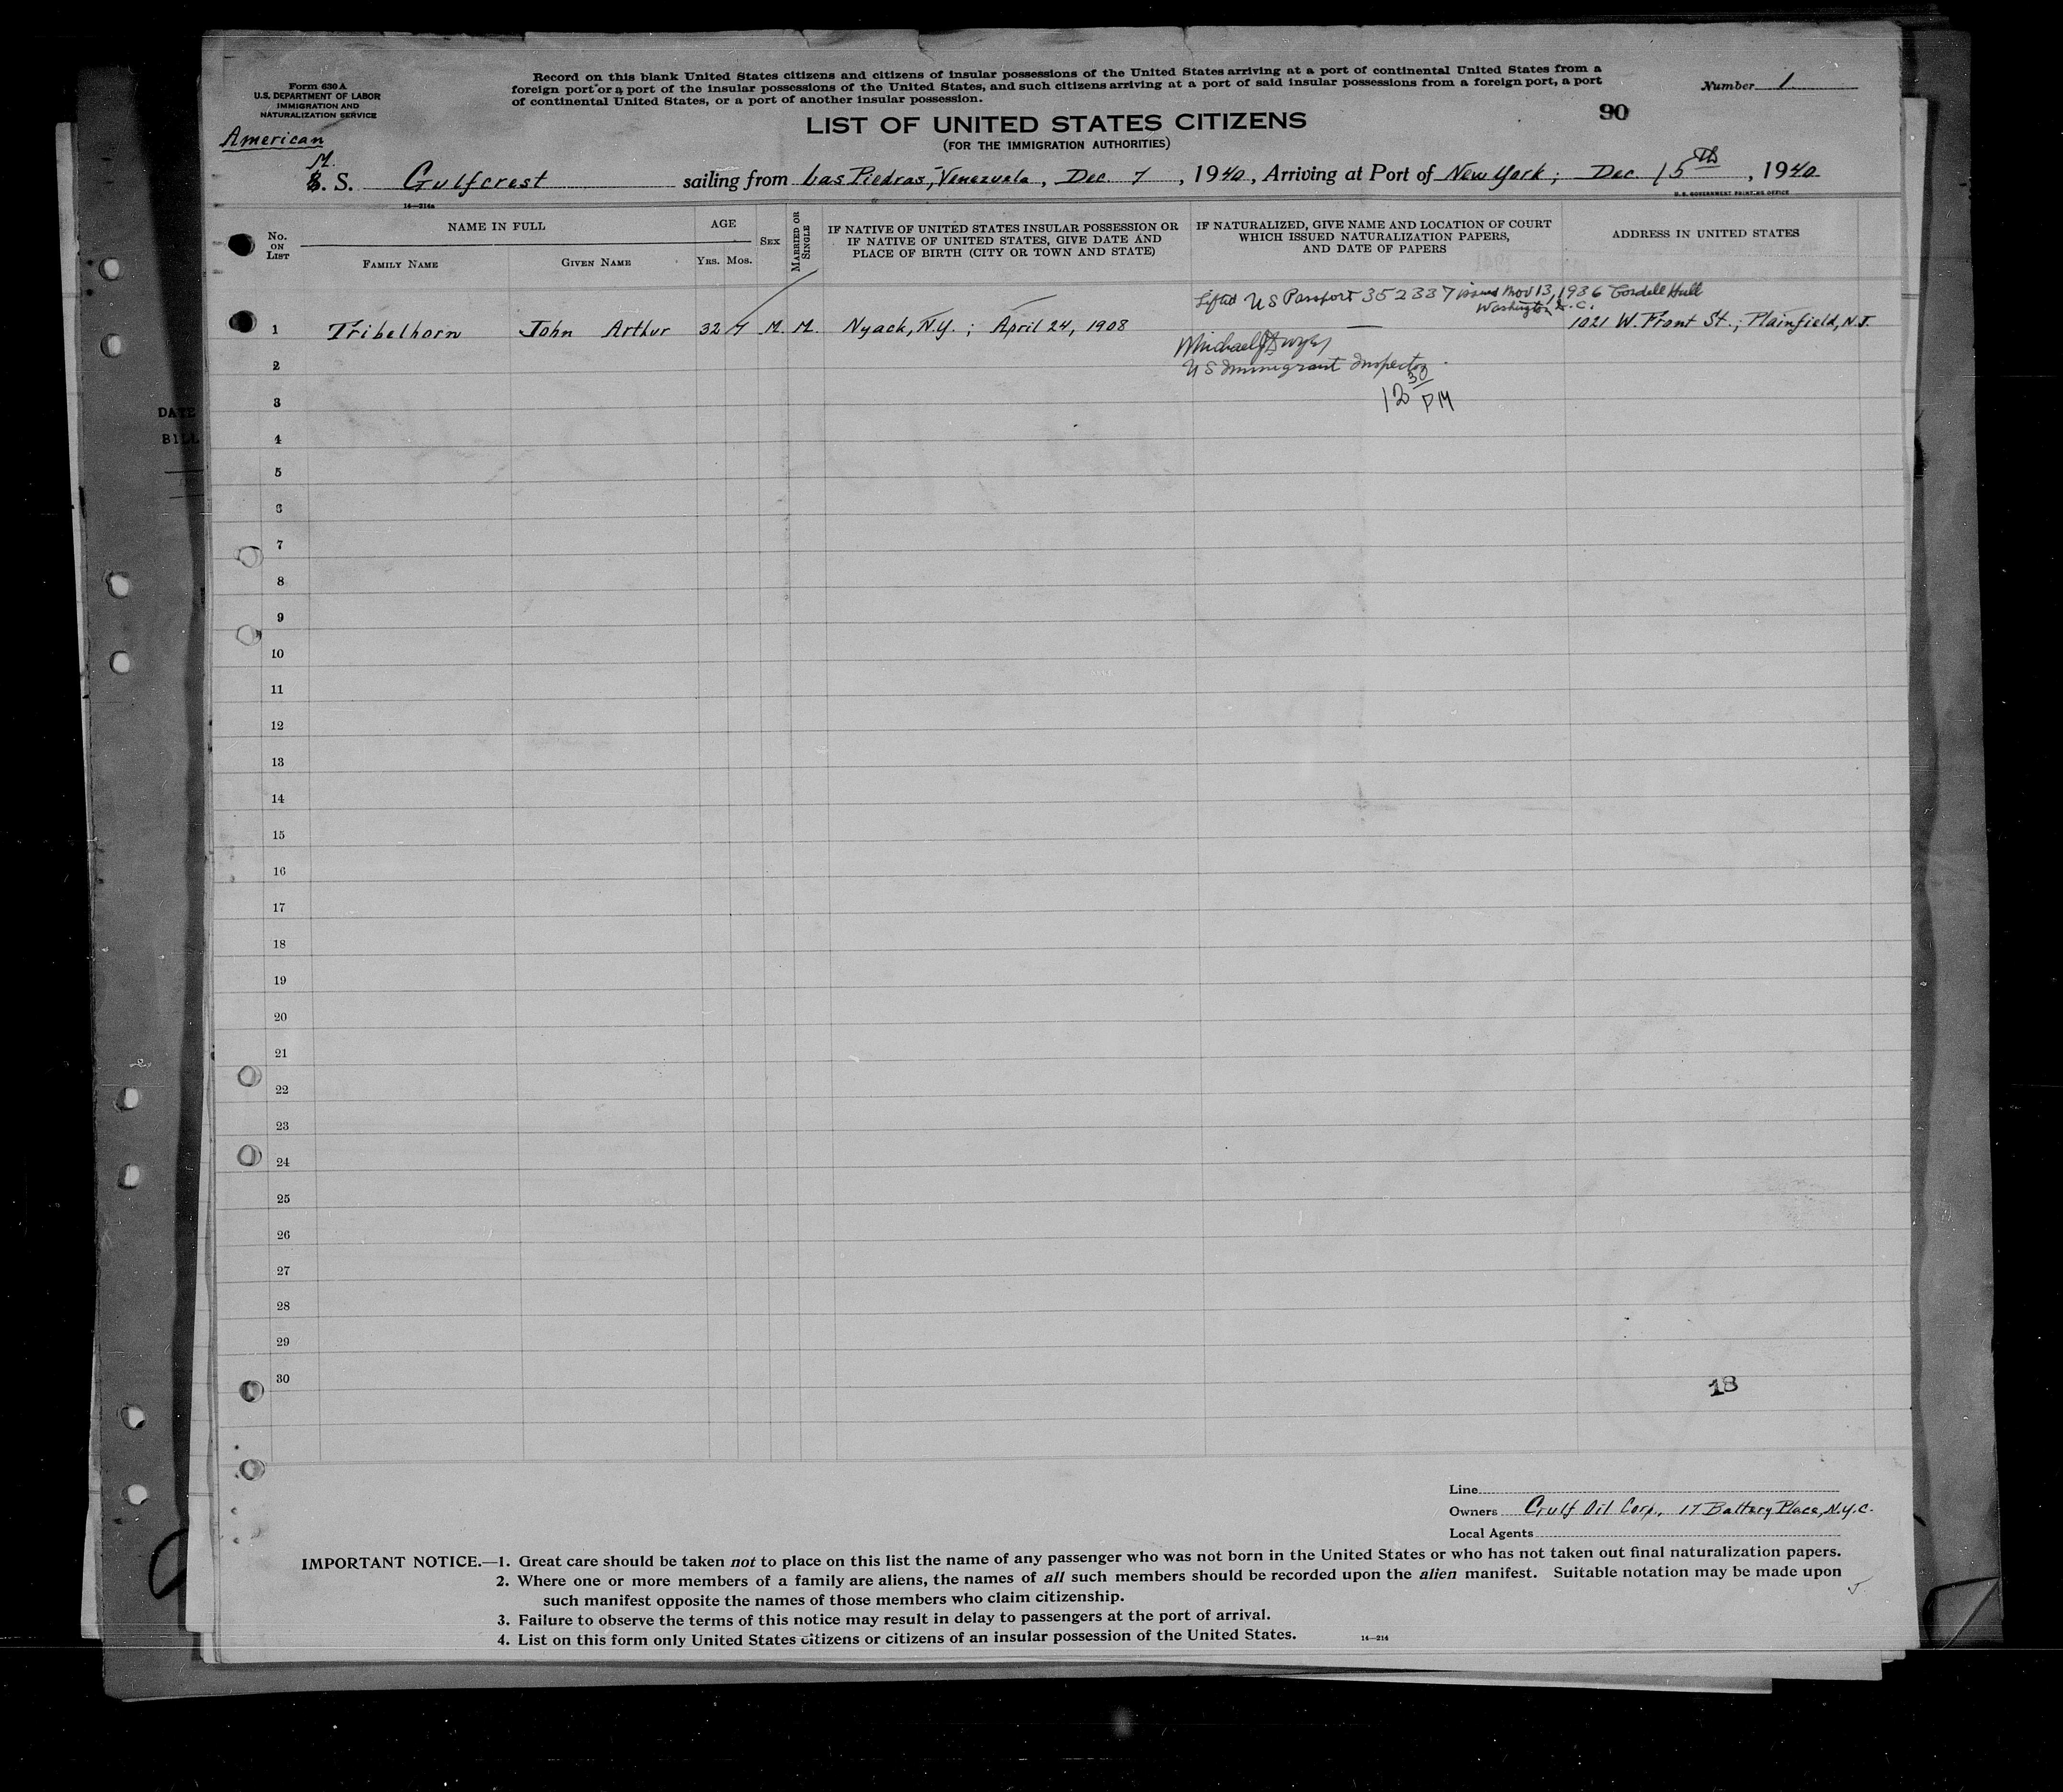 Form 630 A
U.S. DEPARTMENT OF LABOR
IMMIGRATION AND
NATURALIZATION SERVICE
Record on this blank United States citizens and citizens of insular possessions of the United States arriving at a port of continental United States from a
foreign port or a port of the insular possessions of the United States, and such citizens arriving at a port of said insular possessions from a foreign port, a port
of continental United States, or a port of another insular possession.
Number 1
90
American
LIST OF UNITED STATES CITIZENS
(FOR THE IMMIGRATION AUTHORITIES)
M. S. Gulfcrest sailing from Las Piedras, Venezuela, Dec. 7, 1940, Arriving at Port of New York; Dec 15th, 1940
14—214a
U. S. GOVERNMENT PRINTING OFFICE
No. ON LIST
NAME IN FULL
FAMILY NAME
GIVEN NAME
AGE
YRS. MOS.
SEX
MARRIED OR SINGLE
IF NATIVE OF UNITED STATES INSULAR POSSESSION OR
IF NATIVE OF UNITED STATES, GIVE DATE AND
PLACE OF BIRTH (CITY OR TOWN AND STATE)
IF NATURALIZED, GIVE NAME AND LOCATION OF COURT
WHICH ISSUED NATURALIZATION PAPERS,
AND DATE OF PAPERS
ADDRESS IN UNITED STATES
Lifted US Passport 352337 issued Nov 13, 1936 Cordell Hull
Washington D.C.
1 Tribelhorn John Arthur 32 7 M. M. Nyack, N.Y.; April 24, 1908 — 1021 W. Front St.; Plainfield, N.J.
Michael J Dwyer
2 US Immigrant Inspector
3 12 30 PM
4
5
6
7
8
9
10
11
12
13
14
15
16
17
18
19
20
21
22
23
24
25
26
27
28
29
30
18
Line
Owners Gulf Oil Corp., 17 Battery Place, N.Y.C.
Local Agents
IMPORTANT NOTICE.—1. Great care should be taken not to place on this list the name of any passenger who was not born in the United States or who has not taken out final naturalization papers.
2. Where one or more members of a family are aliens, the names of all such members should be recorded upon the alien manifest. Suitable notation may be made upon
such manifest opposite the names of those members who claim citizenship.
3. Failure to observe the terms of this notice may result in delay to passengers at the port of arrival.
4. List on this form only United States citizens or citizens of an insular possession of the United States.
14—214
DATE
BILL